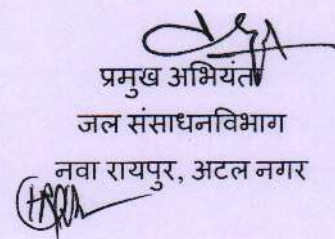 प्रमुख अभियंता
जल संसाधनविभाग
नवा रायपुर, अटल नगर